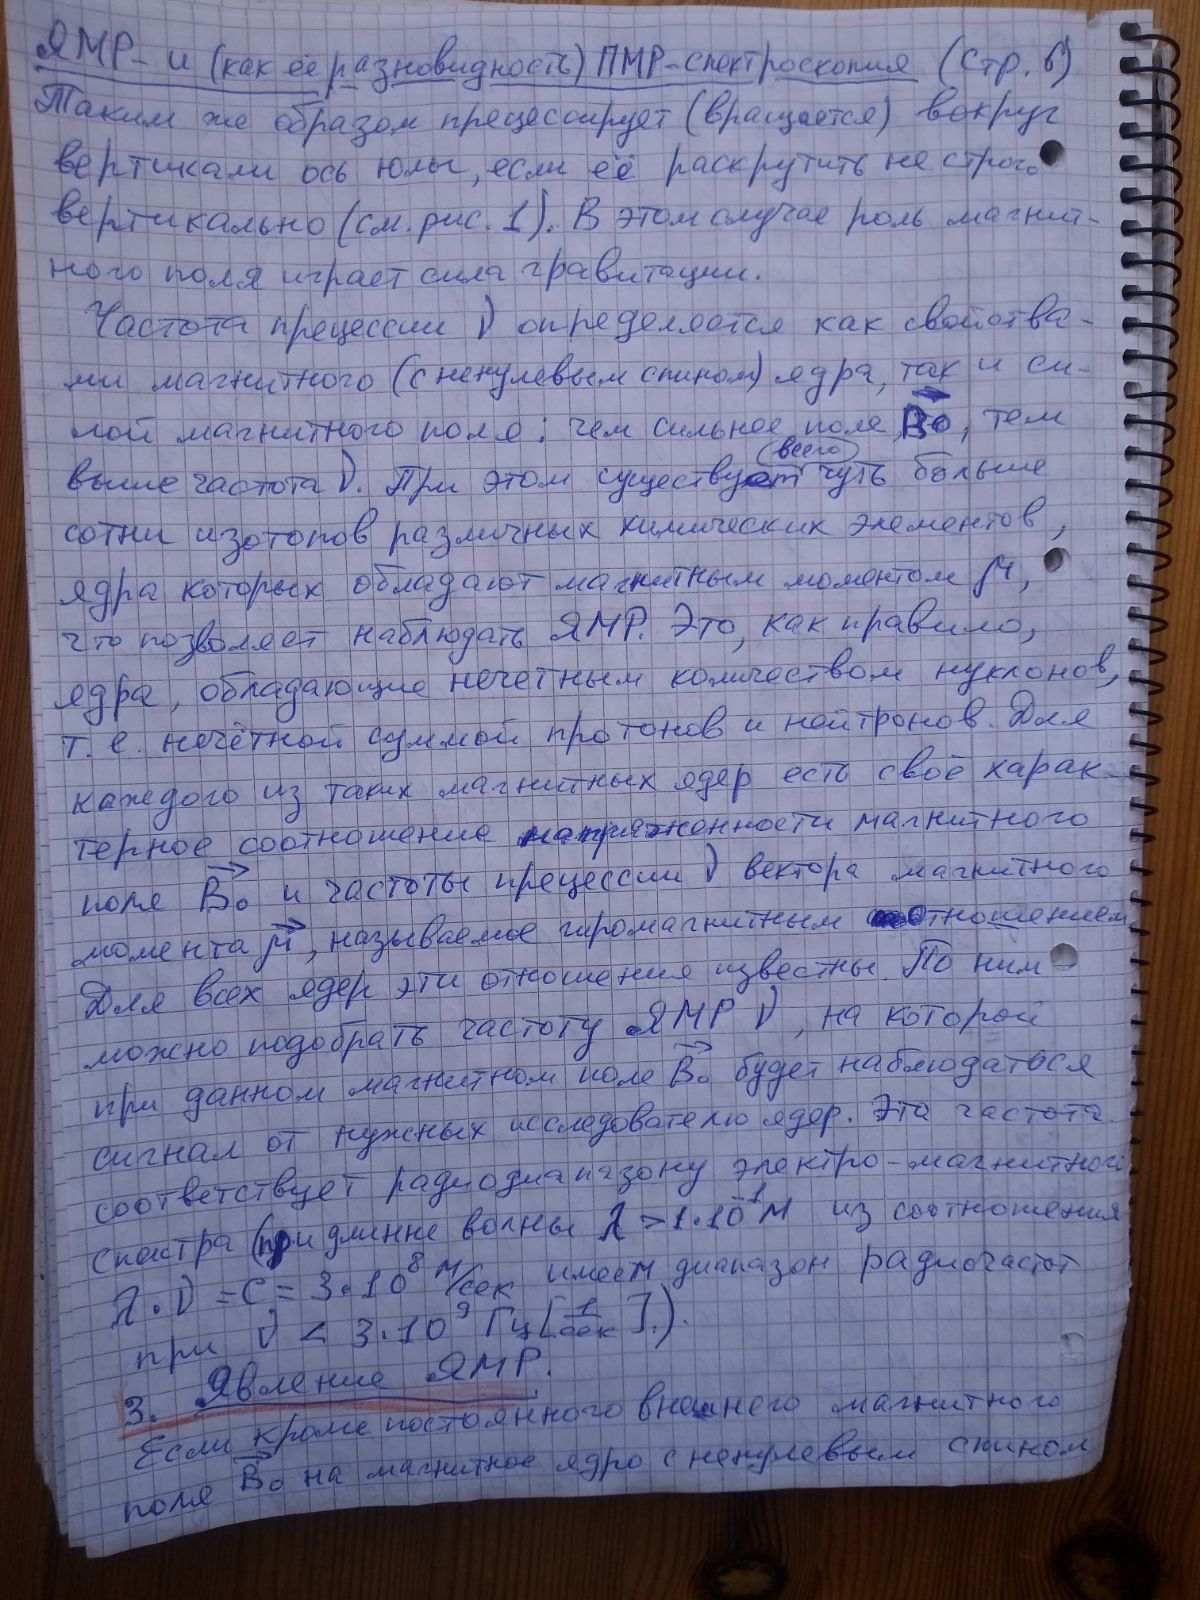 ЯМР- и (как её разновидность) ПМР-спектроскопия (стр. 6)
Таким же образом прецессирует (вращается) вокруг
вертикали ось юлы, если её раскрутить не строго
вертикально (см. рис. 1). В этом случае роль магнит-
ного поля играет сила гравитации.
Частота прецессии ν определяется как свойства-
ми магнитного (с ненулевым спином) ядра, так и си-
лой магнитного поля: чем сильнее поле B₀, тем
всего
выше частота ν. При этом существует чуть больше
сотни изотопов различных химических элементов,
ядра которых обладают магнитным моментом μ,
что позволяет наблюдать ЯМР. Это, как правило,
ядра, обладающие нечётным количеством нуклонов,
т. е. нечётной суммой протонов и нейтронов. Для
каждого из таких магнитных ядер есть своё харак-
терное соотношение напряженности магнитного
поля B₀ и частоты прецессии ν вектора магнитного
момента μ, называемое гиромагнитным отношением.
Для всех ядер эти отношения известны. По ним
можно подобрать частоту ЯМР ν, на которой
при данном магнитном поле B₀ будет наблюдаться
сигнал от нужных исследователю ядер. Эта частота
соответствует радиодиапазону электро-магнитного
спектра (при длинне волны λ > 1·10⁻¹ м из соотношения
λ·ν = C = 3·10⁸ м/сек имеем диапазон радиочастот
при ν < 3·10⁹ Гц [1/сек].).
3. Явление ЯМР.
Если кроме постоянного внешнего магнитного
поля B₀ на магнитное ядро с ненулевым спином